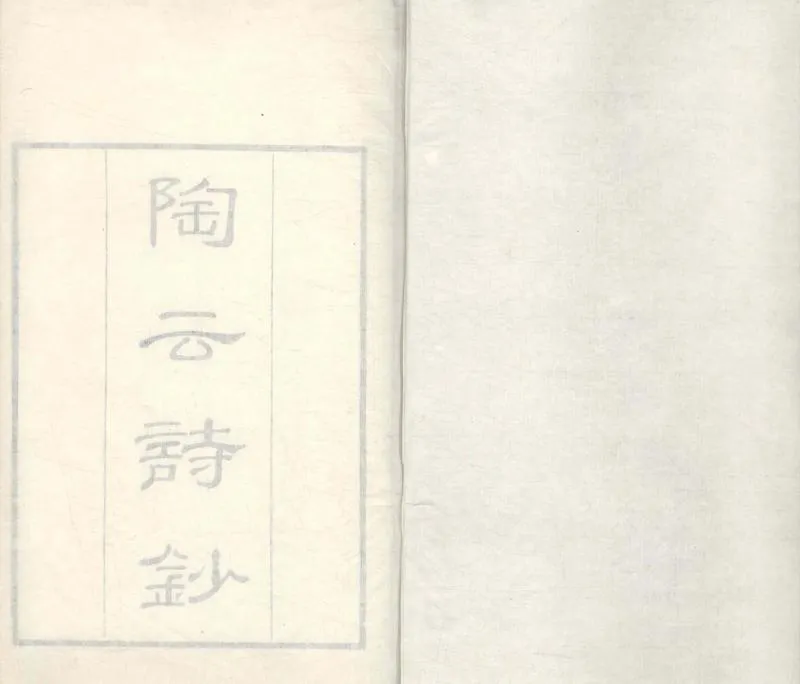 陶云詩鈔